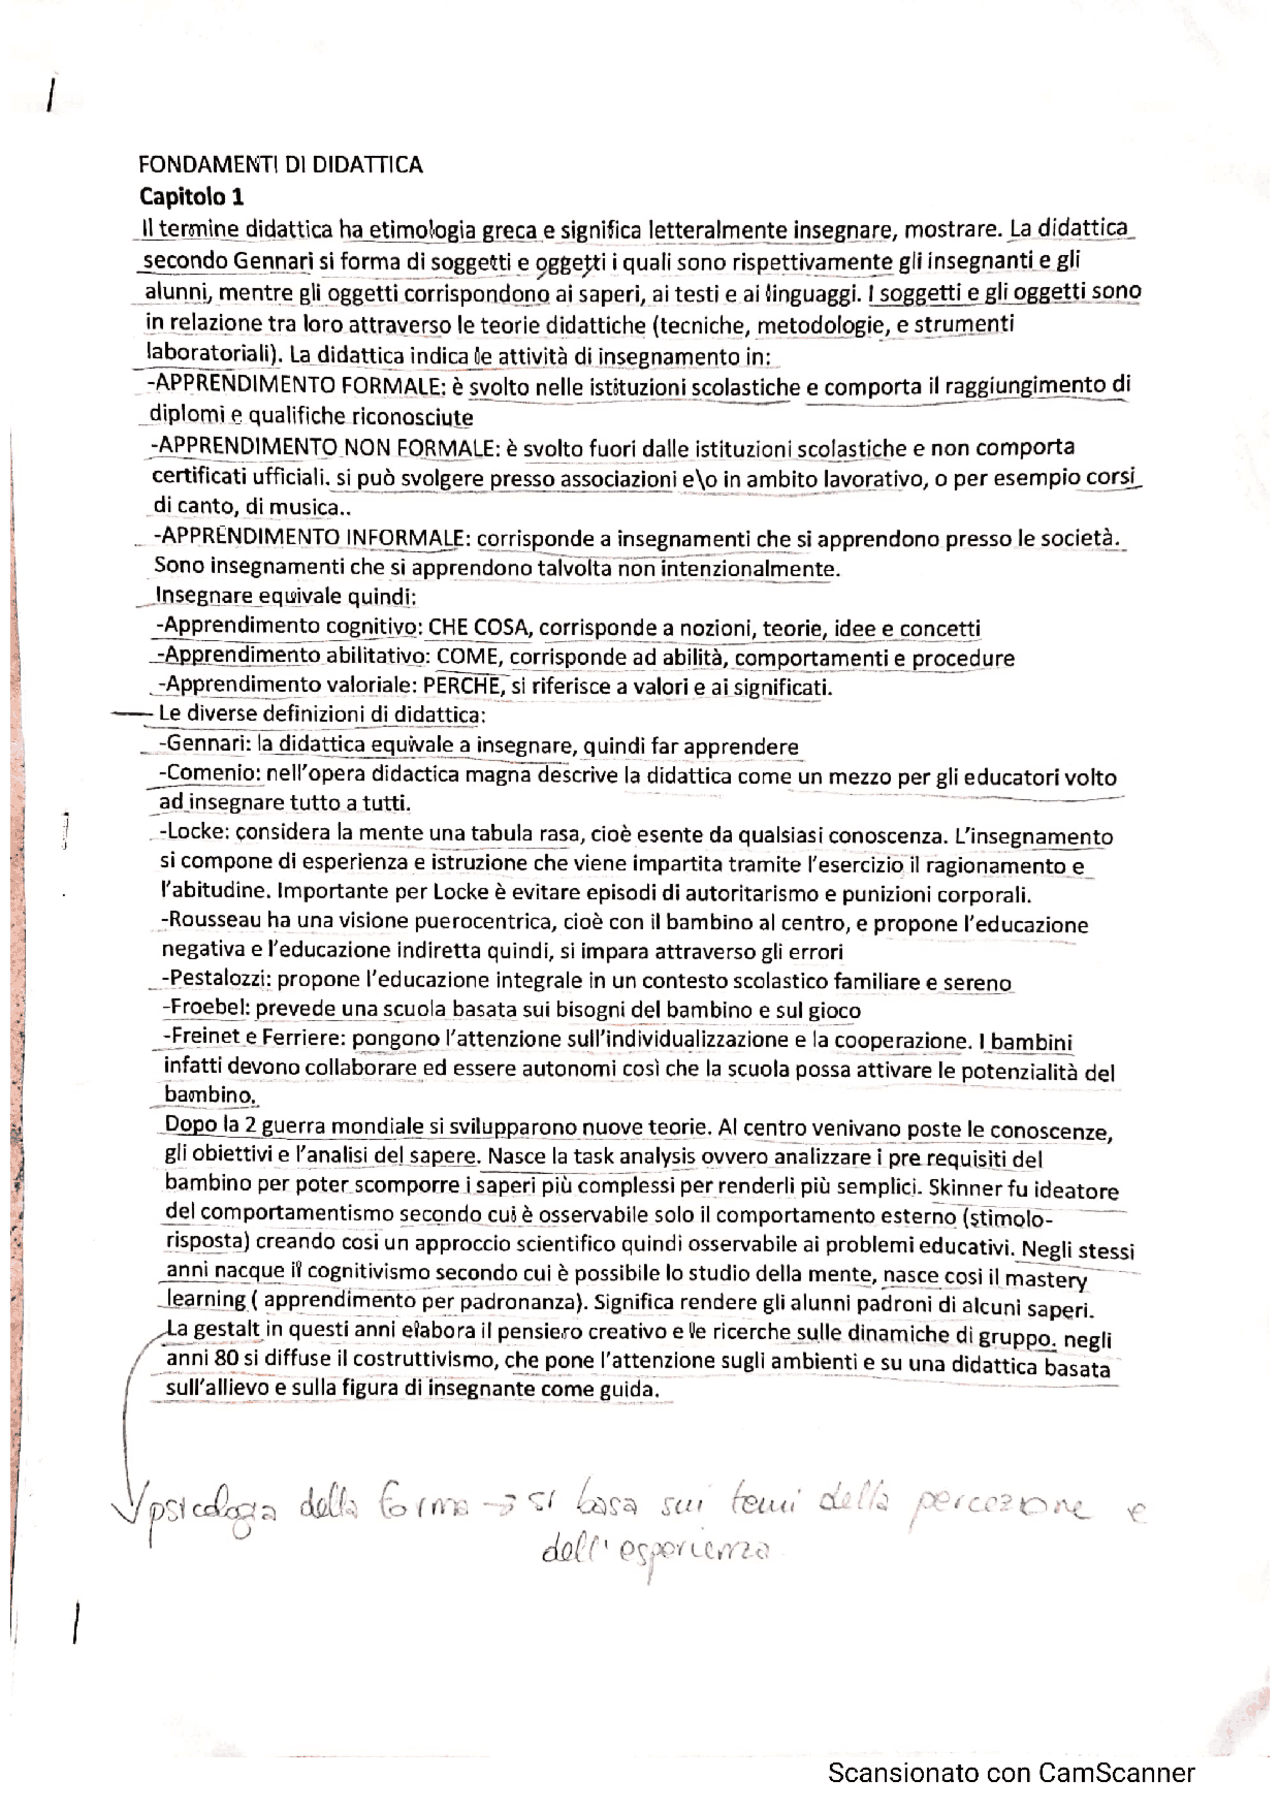 FONDAMENTI DI DIDATTICA
Capitolo 1
Il termine didattica ha etimologia greca e significa letteralmente insegnare, mostrare. La didattica
secondo Gennari si forma di soggetti e oggetti i quali sono rispettivamente gli insegnanti e gli
alunni, mentre gli oggetti corrispondono ai saperi, ai testi e ai linguaggi. I soggetti e gli oggetti sono
in relazione tra loro attraverso le teorie didattiche (tecniche, metodologie, e strumenti
laboratoriali). La didattica indica le attività di insegnamento in:
-APPRENDIMENTO FORMALE: è svolto nelle istituzioni scolastiche e comporta il raggiungimento di
diplomi e qualifiche riconosciute
-APPRENDIMENTO NON FORMALE: è svolto fuori dalle istituzioni scolastiche e non comporta
certificati ufficiali. si può svolgere presso associazioni e\o in ambito lavorativo, o per esempio corsi
di canto, di musica..
-APPRENDIMENTO INFORMALE: corrisponde a insegnamenti che si apprendono presso le società.
Sono insegnamenti che si apprendono talvolta non intenzionalmente.
Insegnare equivale quindi:
-Apprendimento cognitivo: CHE COSA, corrisponde a nozioni, teorie, idee e concetti
-Apprendimento abilitativo: COME, corrisponde ad abilità, comportamenti e procedure
-Apprendimento valoriale: PERCHE, si riferisce a valori e ai significati.
Le diverse definizioni di didattica:
-Gennari: la didattica equivale a insegnare, quindi far apprendere
-Comenio: nell'opera didactica magna descrive la didattica come un mezzo per gli educatori volto
ad insegnare tutto a tutti.
-Locke: considera la mente una tabula rasa, cioè esente da qualsiasi conoscenza. L'insegnamento
si compone di esperienza e istruzione che viene impartita tramite l'esercizio il ragionamento e
l'abitudine. Importante per Locke è evitare episodi di autoritarismo e punizioni corporali.
-Rousseau ha una visione puerocentrica, cioè con il bambino al centro, e propone l'educazione
negativa e l'educazione indiretta quindi, si impara attraverso gli errori
-Pestalozzi: propone l'educazione integrale in un contesto scolastico familiare e sereno
-Froebel: prevede una scuola basata sui bisogni del bambino e sul gioco
-Freinet e Ferriere: pongono l'attenzione sull'individualizzazione e la cooperazione. I bambini
infatti devono collaborare ed essere autonomi così che la scuola possa attivare le potenzialità del
bambino.
Dopo la 2 guerra mondiale si svilupparono nuove teorie. Al centro venivano poste le conoscenze,
gli obiettivi e l'analisi del sapere. Nasce la task analysis ovvero analizzare i pre requisiti del
bambino per poter scomporre i saperi più complessi per renderli più semplici. Skinner fu ideatore
del comportamentismo secondo cui è osservabile solo il comportamento esterno (stimolo-
risposta) creando cosi un approccio scientifico quindi osservabile ai problemi educativi. Negli stessi
anni nacque il cognitivismo secondo cui è possibile lo studio della mente, nasce cosi il mastery
learning ( apprendimento per padronanza). Significa rendere gli alunni padroni di alcuni saperi.
La gestalt in questi anni elabora il pensiero creativo e le ricerche sulle dinamiche di gruppo. negli
anni 80 si diffuse il costruttivismo, che pone l'attenzione sugli ambienti e su una didattica basata
sull'allievo e sulla figura di insegnante come guida.
psicologa della forma → si basa sui temi della percezione e
dell'esperienza
Scansionato con CamScanner